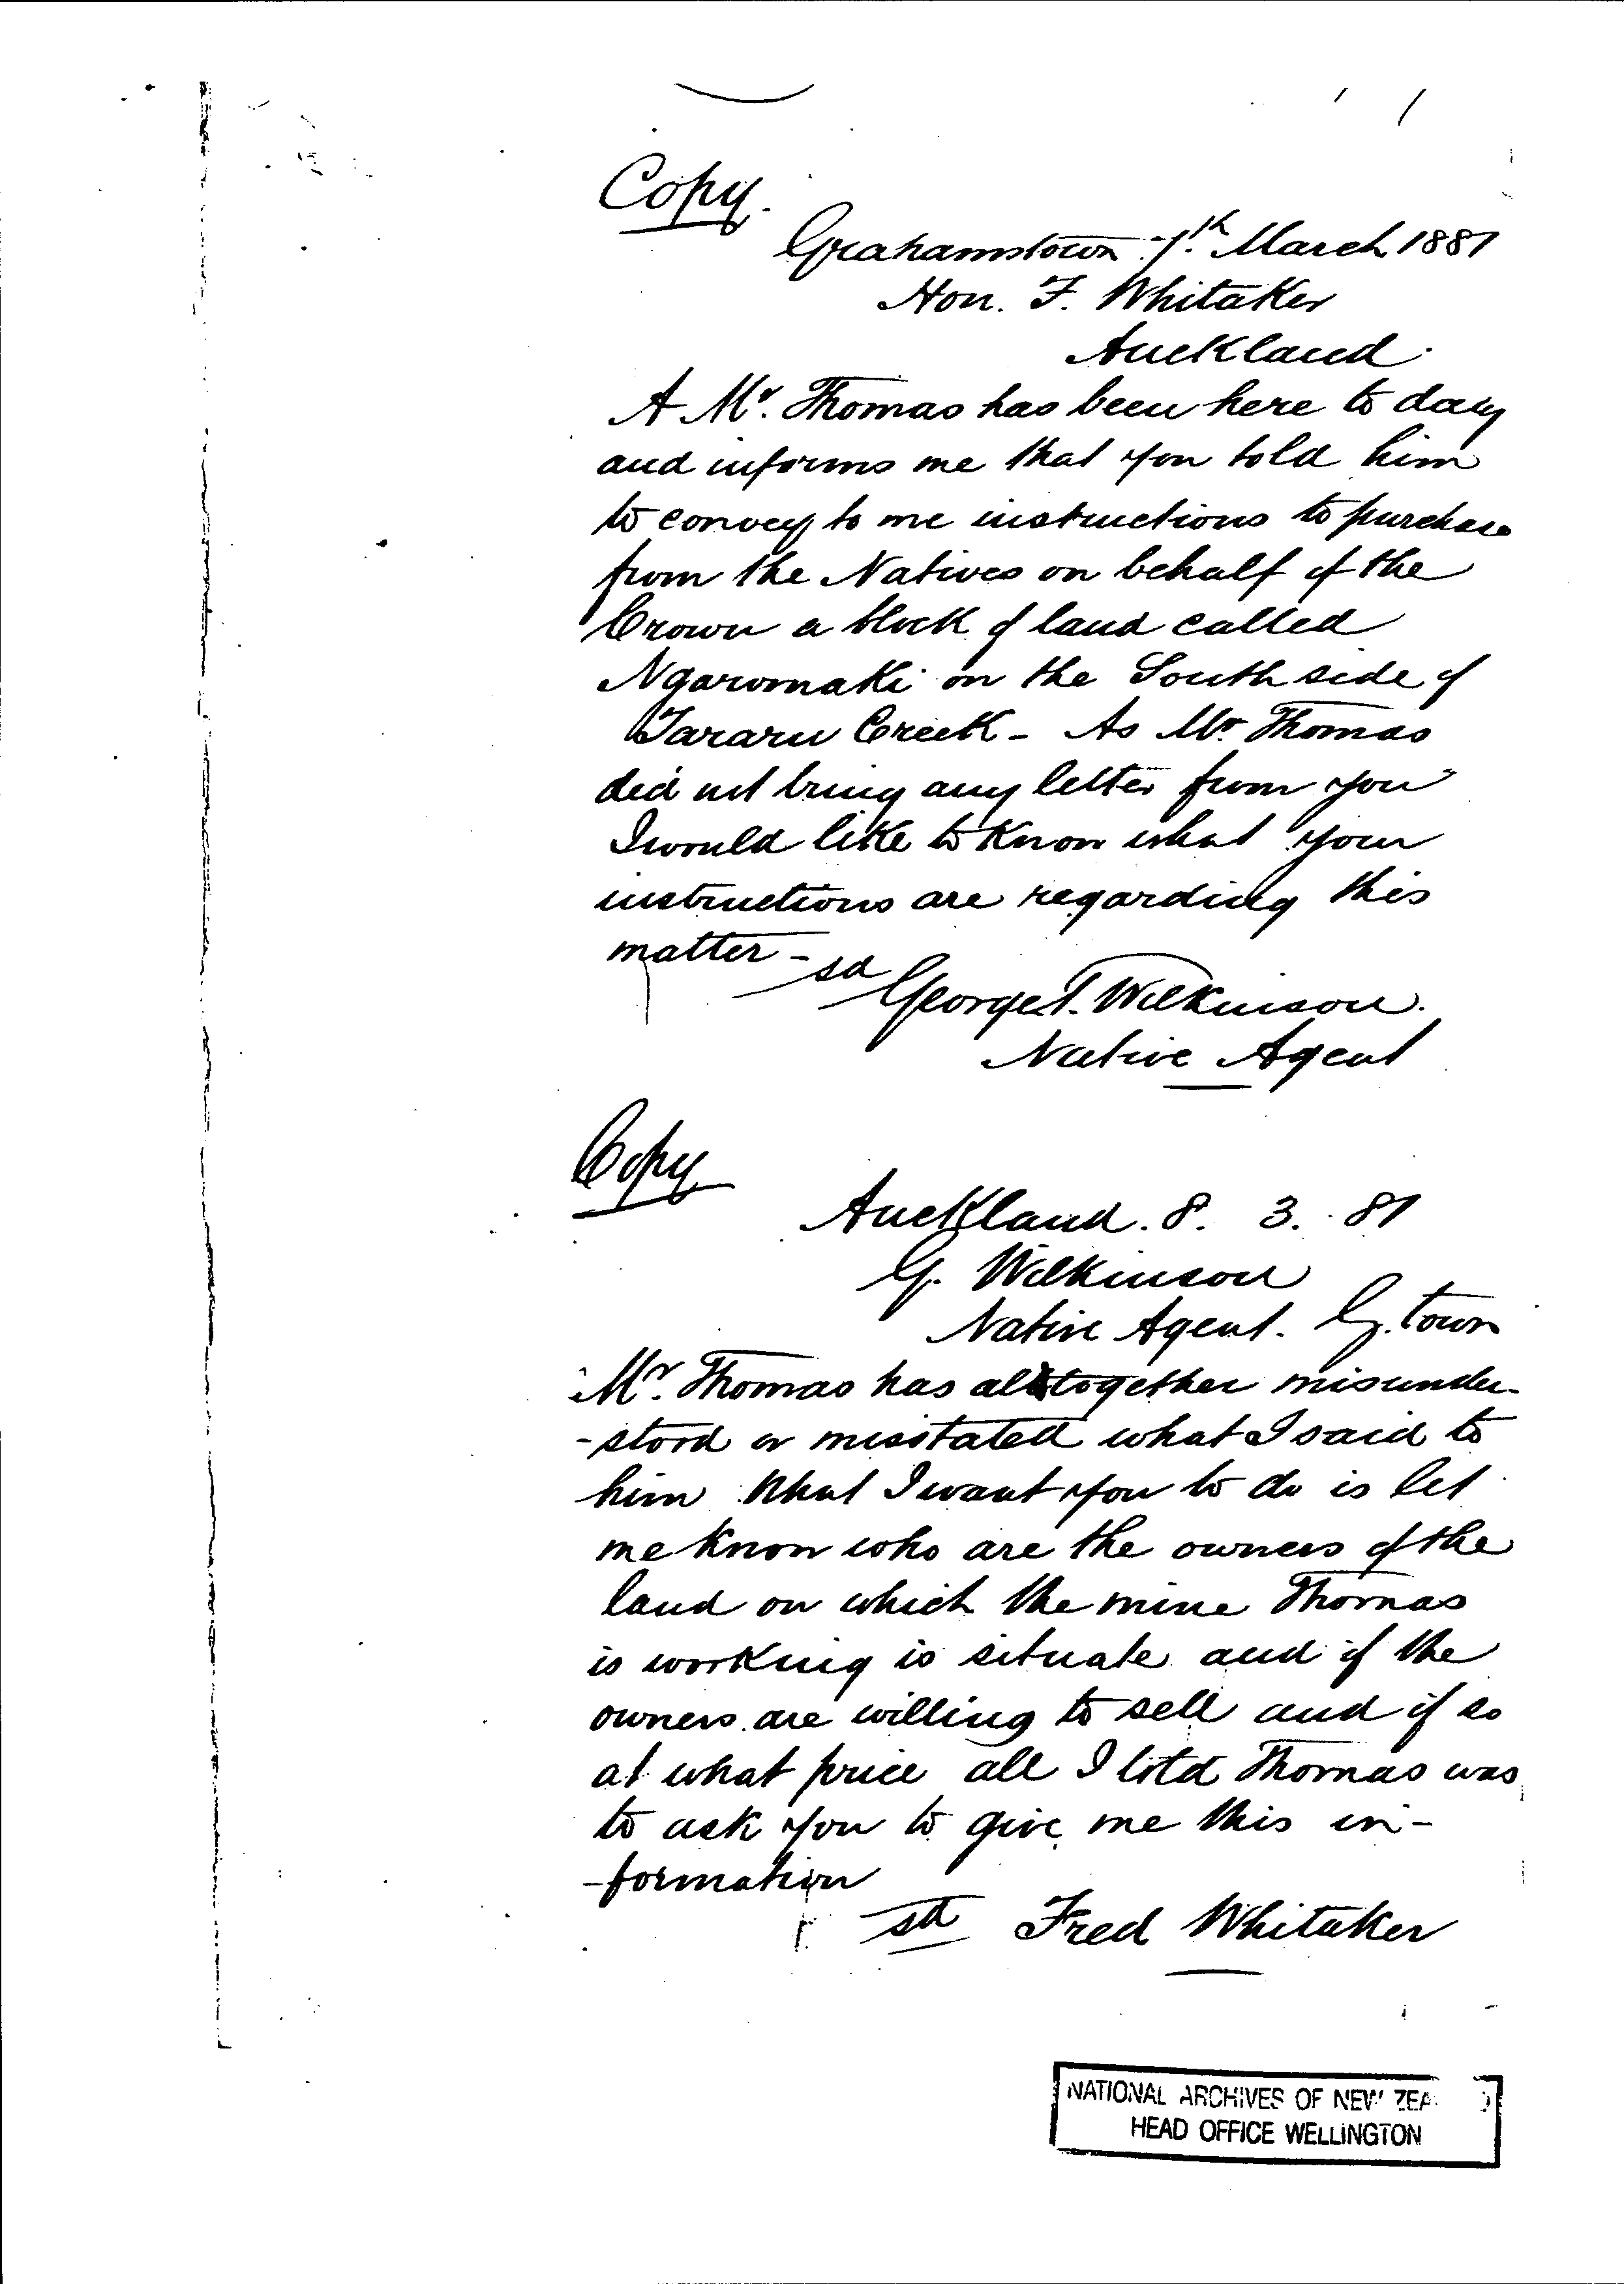 Copy.
Grahamstown 7th March 1881
Hon. F. Whitaker
Auckland.
A Mr. Thomas has been here to day
and informs me that you told him
to convey to me instructions to purchase
from the Natives on behalf of the
Crown a block of land called
Ngaromaki on the South side of
Tararu Creek - As Mr. Thomas
did not bring any letter from you
I would like to know what your
instructions are regarding this
matter - sd
George T. Wilkinson.
Native Agent
Copy
Auckland. 8. 3. 81
G. Wilkinson
Native Agent. G. town
Mr. Thomas has altogether misunder-
-stood or misstated what I said to
him What I want you to do is let
me know who are the owners of the
land on which the mine Thomas
is working is situate and if the
owners are willing to sell and if so
at what price all I told Thomas was
to ask you to give me this in-
-formation
sd Fred Whitaker
NATIONAL ARCHIVES OF NEW ZEA D
HEAD OFFICE WELLINGTON